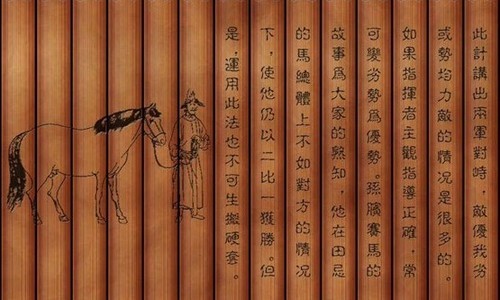 此計講出兩軍對峙，敵優我劣
或勢均力敵的情况是很多的。
如果指揮者主觀指導正確，常
可變劣勢爲優勢。孫臏賽馬的
故事爲大家的熟知，他在田忌
的馬總體上不如對方的情况
下，使他仍以二比一獲勝。但
是，運用此法也不可生搬硬套。